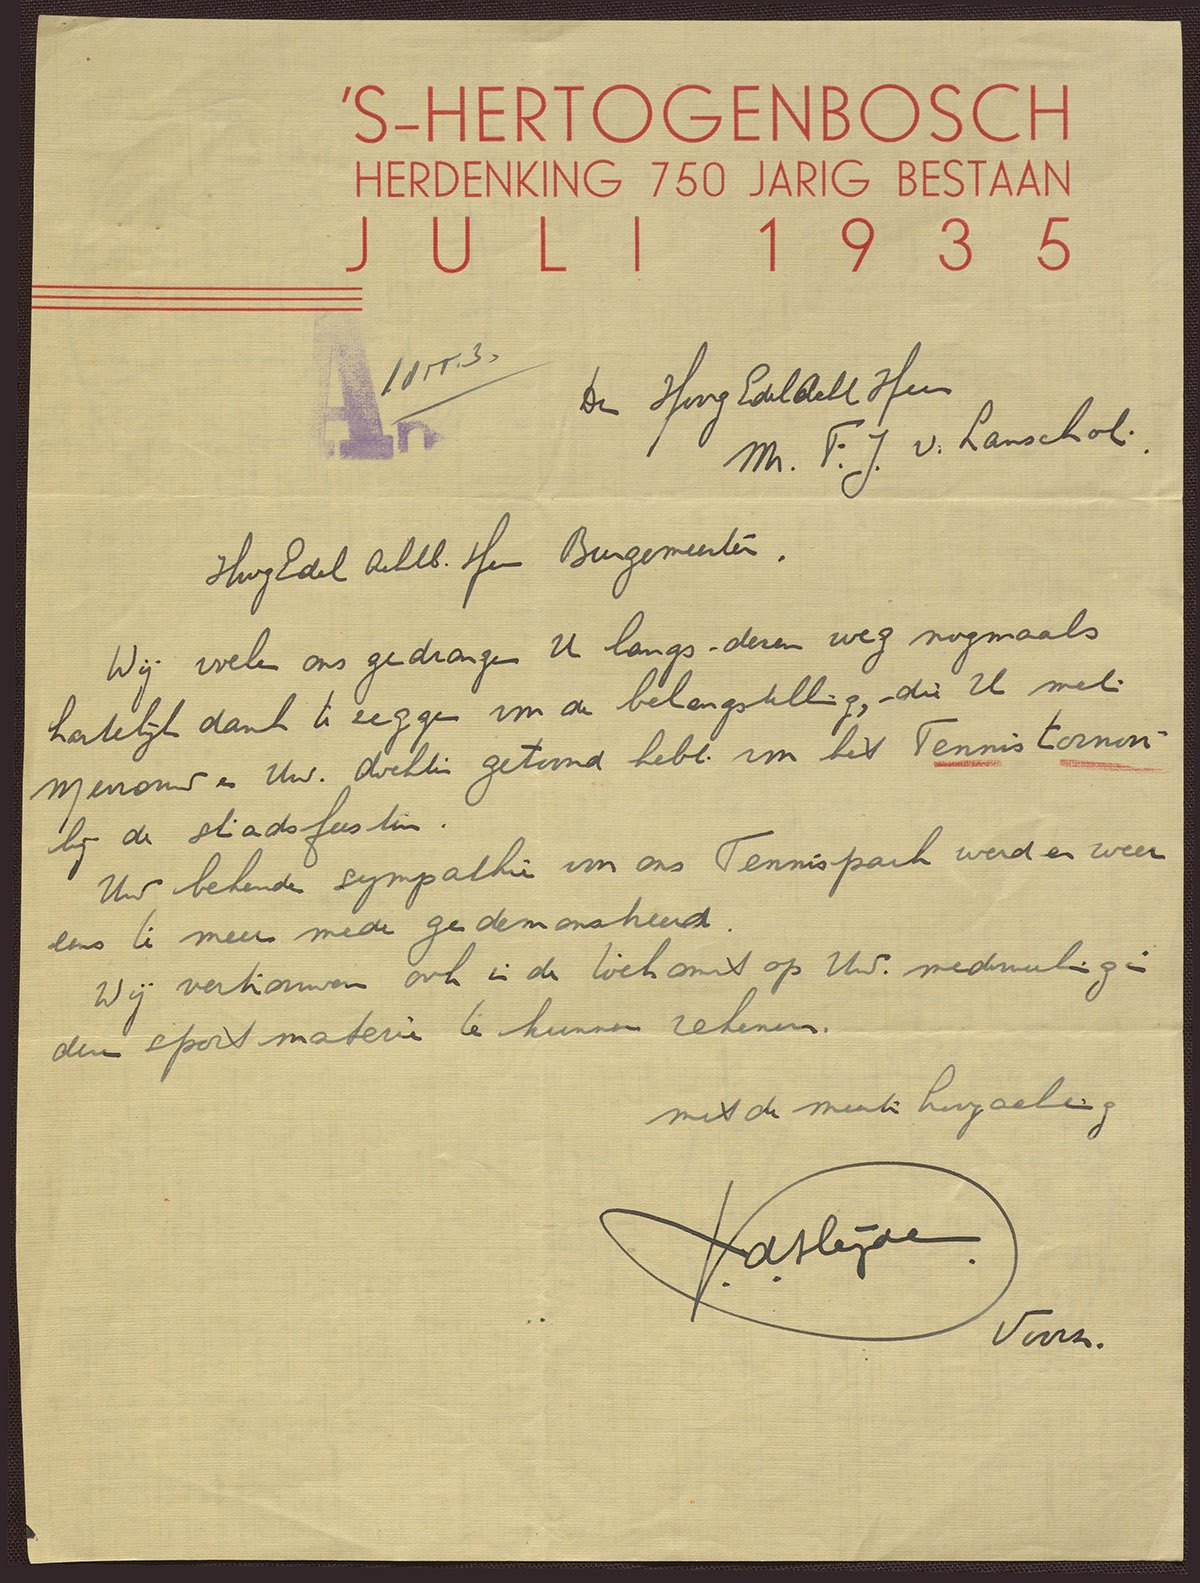 'S-HERTOGENBOSCH
HERDENKING 750 JARIG BESTAAN
JULI 1935
An
Den HoogEdelAchtb Heer
Mr. F. J. v. Lanschot.
HoogEdel Achtb. Heer Burgemeester.
Wij voelen ons gedrongen U langs dezen weg nogmaals
hartelijk dank te zeggen voor de belangstelling, die U met
Mevrouw en Uw. dochter getoond hebt voor het Tennis tornooi
bij de stadsfeesten.
Uw bekende sympathie voor ons Tennispark werd er weer
eens te meer mede gedemonstreerd.
Wij vertrouwen ook in de toekomst op Uw. medewerking in
deze sport materie te kunnen rekenen.
met de meeste hoogachting
V. d. Heijden.
Voorz.